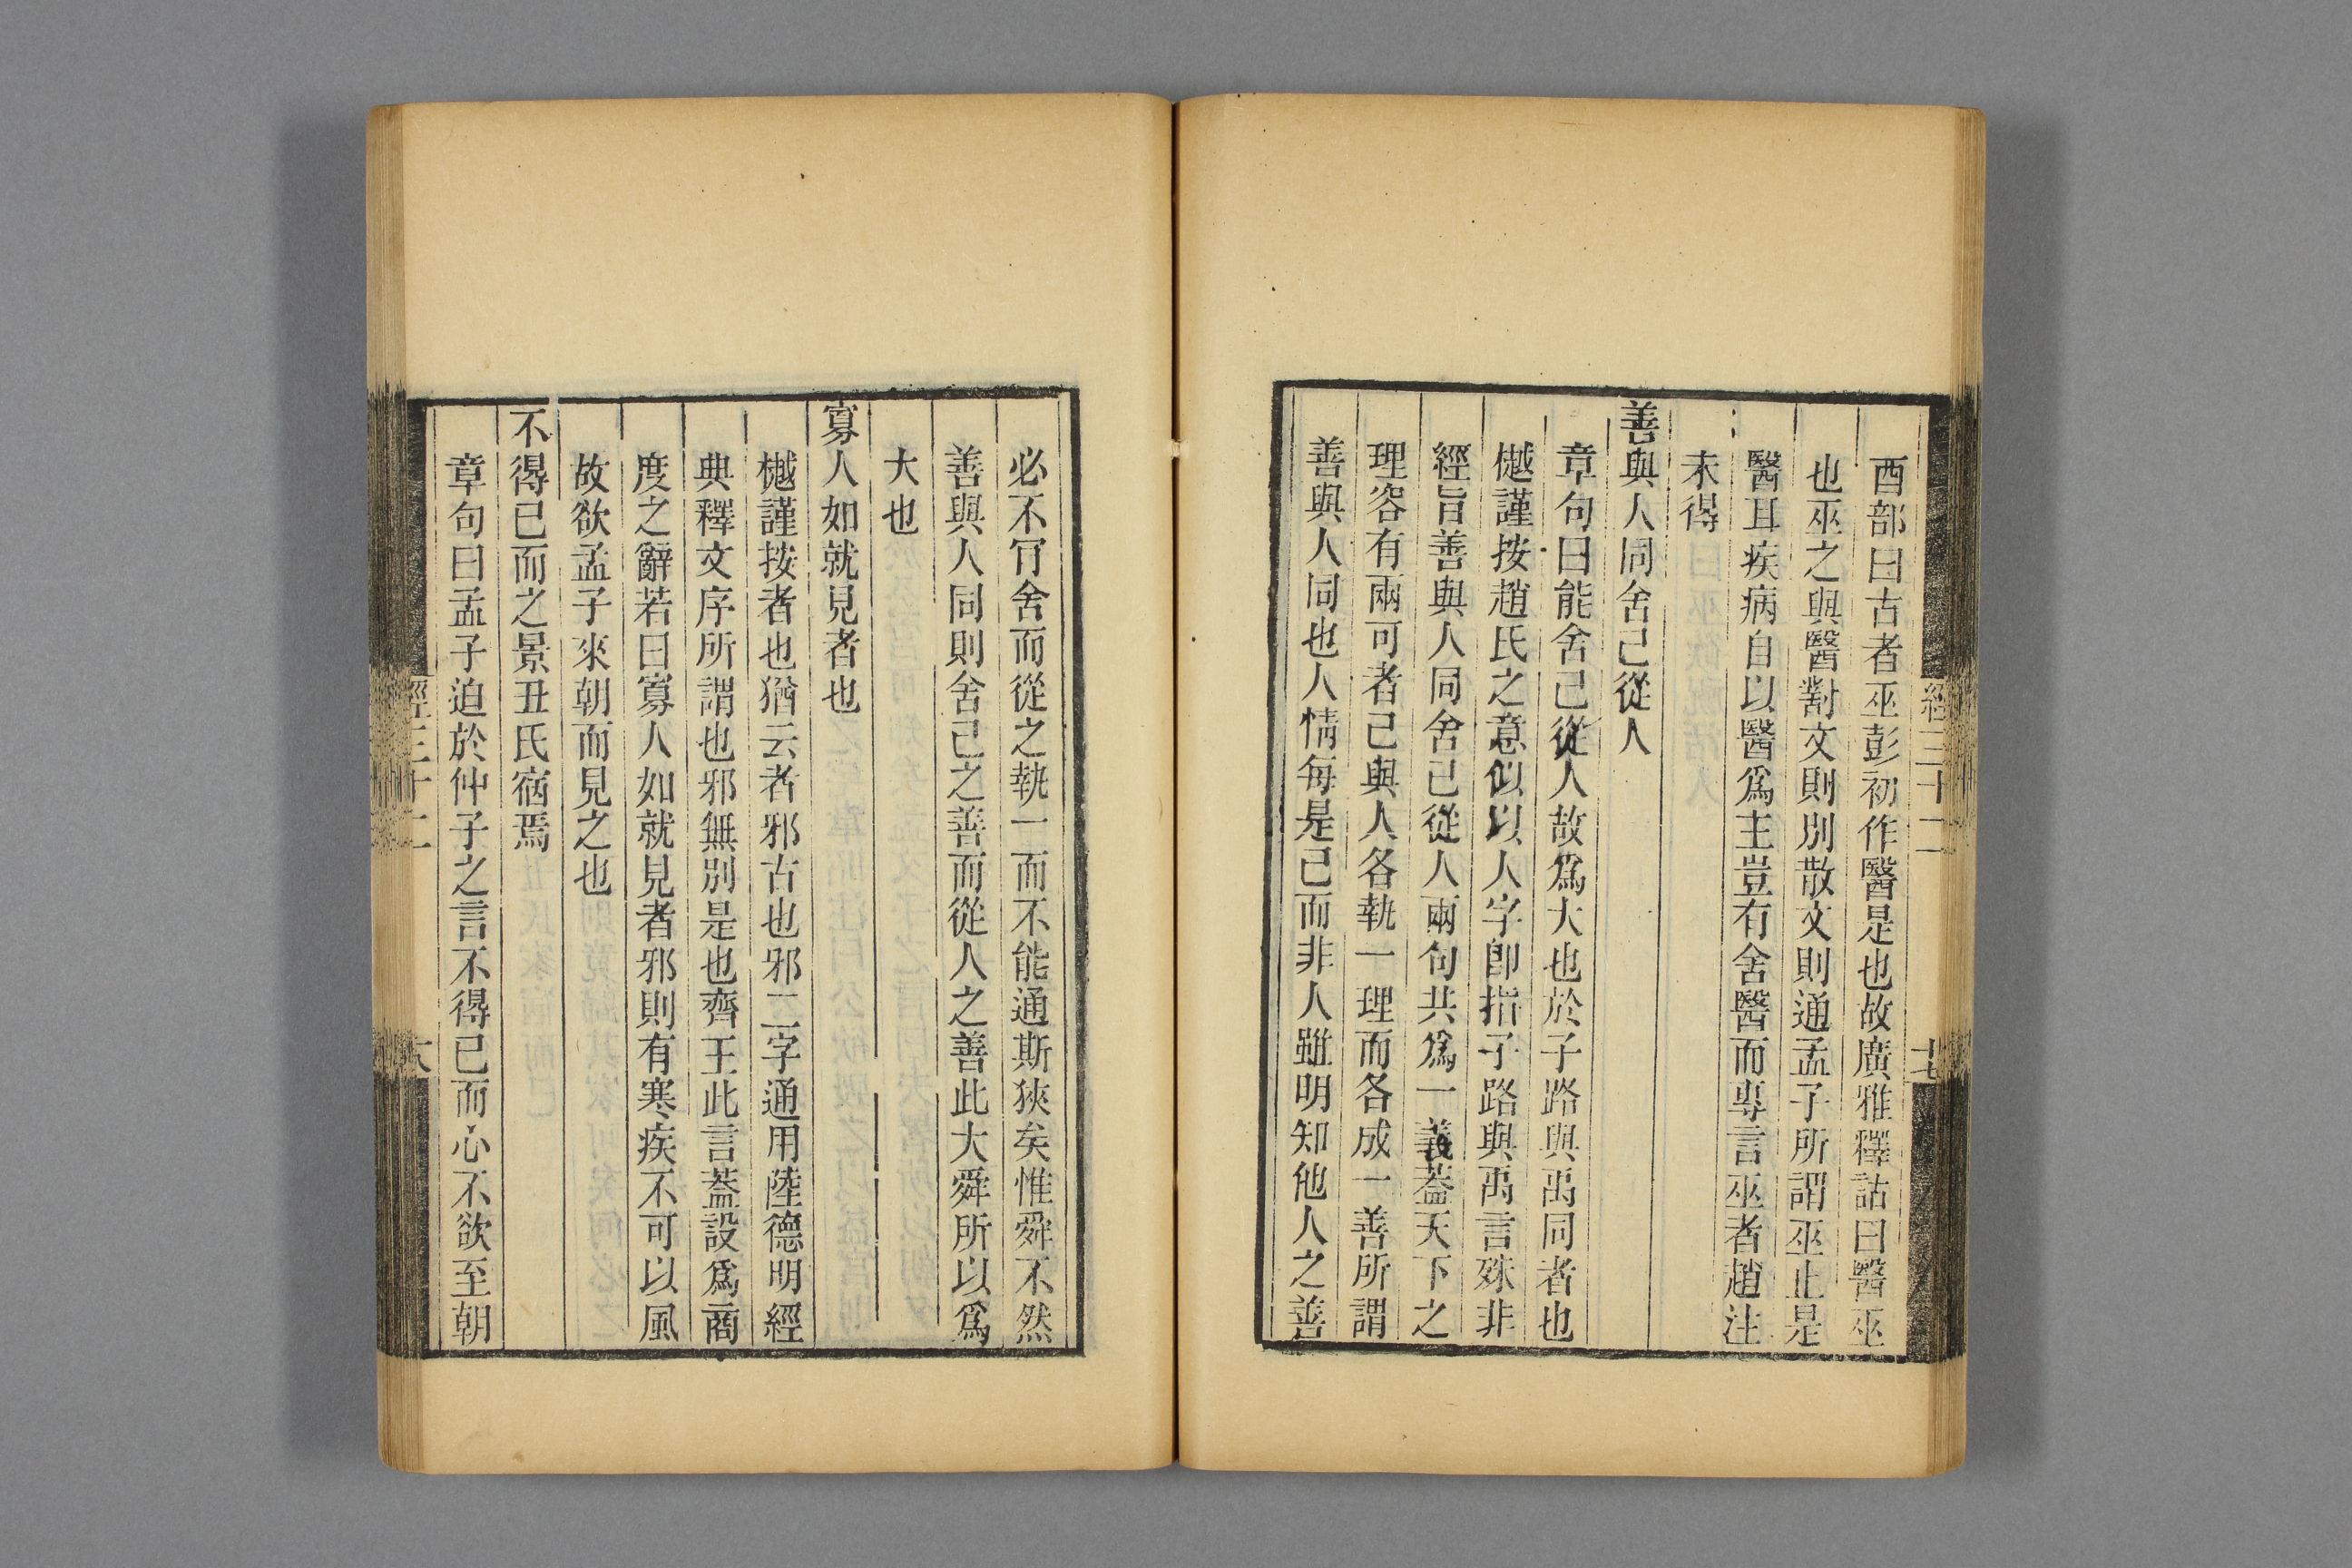 酉部曰古者巫彭初作醫是也故廣雅釋詁曰醫巫
也巫之與醫對文則別散文則通孟子所謂巫止是
醫耳疾病自以醫爲主豈有舍醫而專言巫者趙注
未得
善與人同舍己從人
章句曰能舍己從人故爲大也於子路與禹同者也
樾謹按趙氏之意似以人字卽指子路與禹言殊非
經旨善與人同舍己從人兩句共爲一義蓋天下之
理容有兩可者己與人各執一理而各成一善所謂
善與人同也人情每是己而非人雖明知他人之善
經三十二
十七
必不肎舍而從之執一而不能通斯狹矣惟舜不然
善與人同則舍己之善而從人之善此大舜所以爲
大也
寡人如就見者也
樾謹按者也猶云者邪古也邪二字通用陸德明經
典釋文序所謂也邪無別是也齊王此言蓋設爲商
度之辭若曰寡人如就見者邪則有寒疾不可以風
故欲孟子來朝而見之也
不得已而之景丑氏宿焉
章句曰孟子迫於仲子之言不得已而心不欲至朝
經三十二